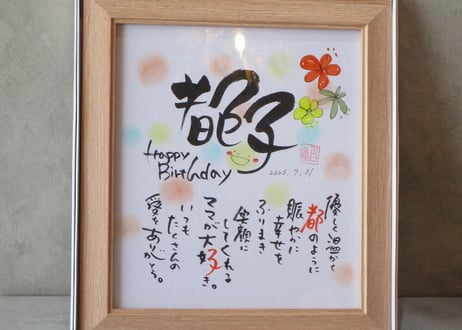 都子
Happy
Birthday
2023.7.31
優しく温かく
都のように
賑やかに
幸せを
ふりまき
笑顔に
してくれる
ママが大好き。
いつも
たくさんの
愛をありがとう。